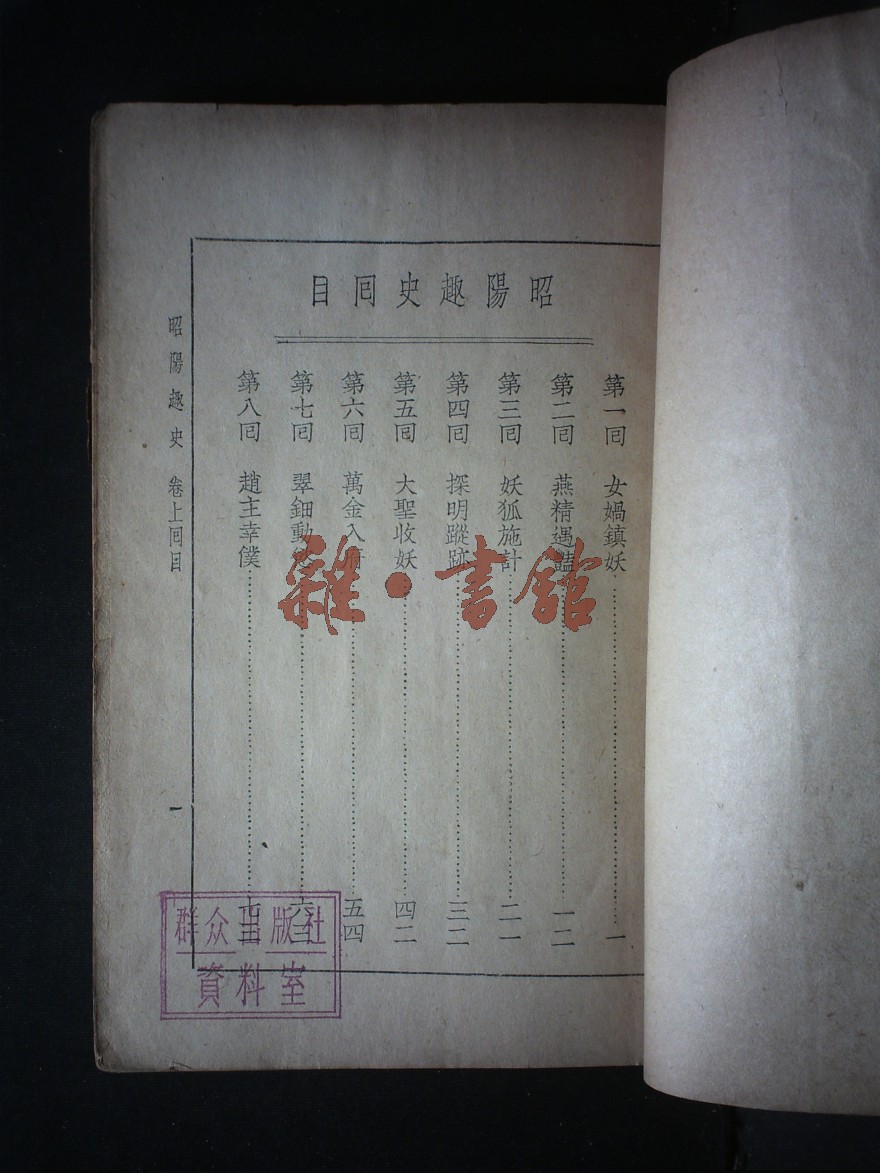 昭陽趣史囘目
第一囘 女媧鎮妖……一
第二囘 燕精遇……一二
第三囘 妖狐施計……二一
第四囘 探明蹤跡……三二
第五囘 大聖收妖……四二
第六囘 萬金入……五四
第七囘 翠鈿動……六
第八囘 趙主幸僕……七
昭陽趣史 卷上囘目
一
雜·書館
群众出版社
資料室